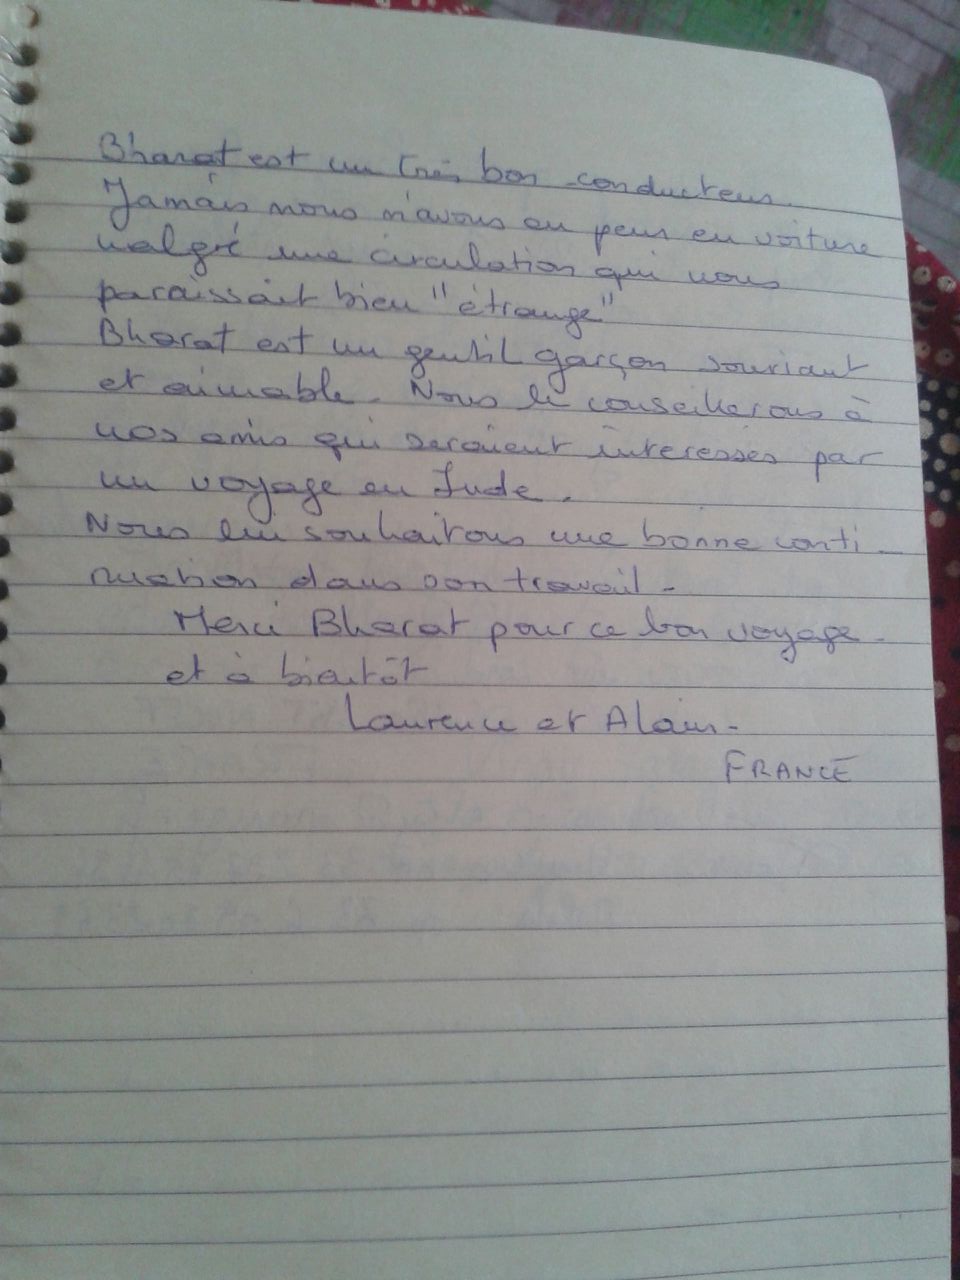 Bharat est un très bon conducteur.
Jamais nous n'avons eu peur en voiture
malgré une circulation qui nous
paraissait bien "étrange"
Bharat est un gentil garçon souriant
et aimable. Nous le conseillerons à
nos amis qui seraient intéressés par
un voyage en Inde.
Nous lui souhaitons une bonne conti-
nuation dans son travail -
Merci Bharat pour ce bon voyage -
et à bientôt
Laurence et Alain -
FRANCE